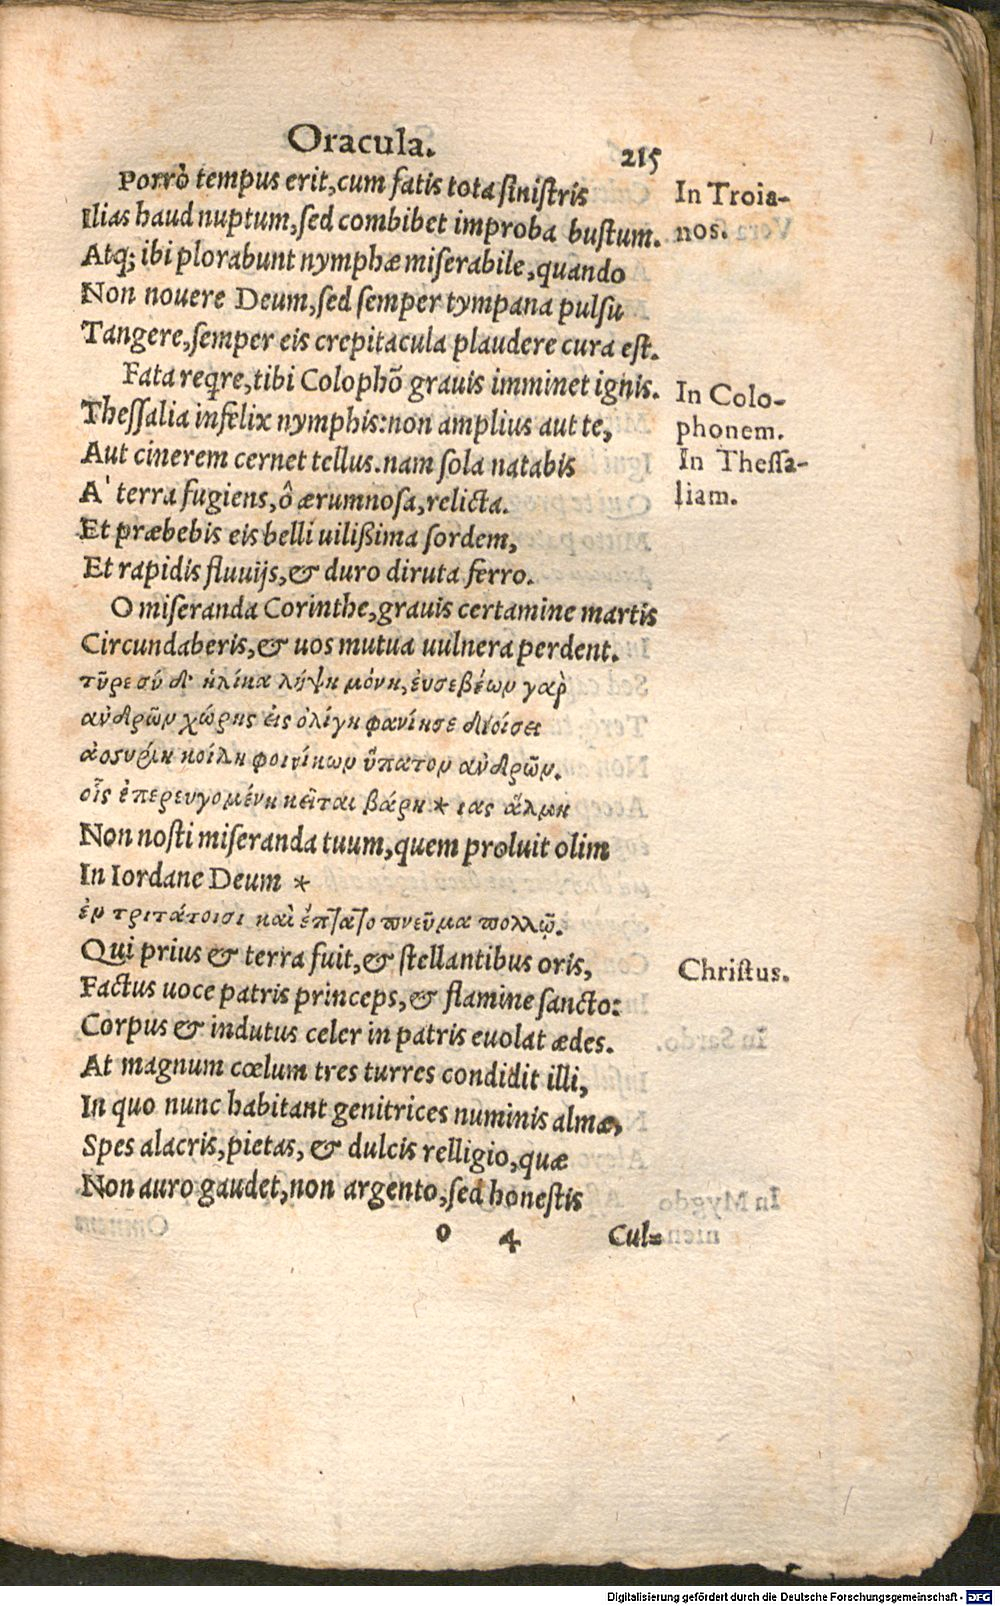 Oracula.
215
Porrò tempus erit, cum fatis tota sinistris
Ilias haud nuptum, sed combibet improba bustum.
Atq; ibi plorabunt nymphæ miserabile, quando
Non nouere Deum, sed semper tympana pulsu
Tangere, semper eis crepitacula plaudere cura est.
Fata reqre, tibi Colophõ grauis imminet ignis.
Thessalia infelix nymphis: non amplius aut te,
Aut cinerem cernet tellus. nam sola natabis
A' terra fugiens, ô ærumnosa, relicta.
Et præbebis eis belli uilißima sordem,
Et rapidis fluuijs, & duro diruta ferro.
O miseranda Corinthe, grauis certamine martis
Circundaberis, & uos mutua uulnera perdent.
τῦρε σύ δ' ἡλίκα λήψη μόνη, ἐυσεβέων γαρ
ανδρῶν χώρης εἰς ὀλίγη φανίησε διοίσει
κοίλη φοινίκων ὕπατον ανδρῶν.
οἷς ἐπερευγομένη κεῖται βάρη * ιας ἅλμη
Non nosti miseranda tuum, quem proluit olim
In Iordane Deum *
ἐν τριτάτοισι καὶ ἐπτατο πνεῦμα πολλῷ.
Qui prius & terra fuit, & stellantibus oris,
Factus uoce patris princeps, & flamine sancto:
Corpus & indutus celer in patris euolat ædes.
At magnum cœlum tres turres condidit illi,
In quo nunc habitant genitrices numinis almæ,
Spes alacris, pietas, & dulcis relligio, quæ
Non auro gaudet, non argento, sed honestis
o 4
Cul=
In Troia-
nos.
In Colo-
phonem.
In Thessa-
liam.
Christus.
Digitalisierung gefördert durch die Deutsche Forschungsgemeinschaft - DFG